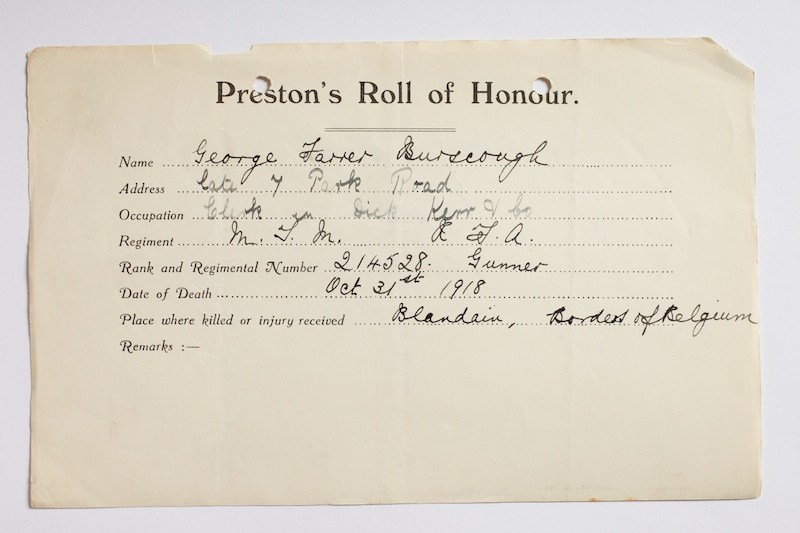 Preston's Roll of Honour.
Name George Farrer Burscough
Address late 7 Park Road
Occupation Clerk in Dick Kerr & Co
Regiment M. T. M. R F. A.
Rank and Regimental Number 214528. Gunner
Date of Death Oct 31st 1918
Place where killed or injury received Blandain, Borders of Belgium
Remarks :—